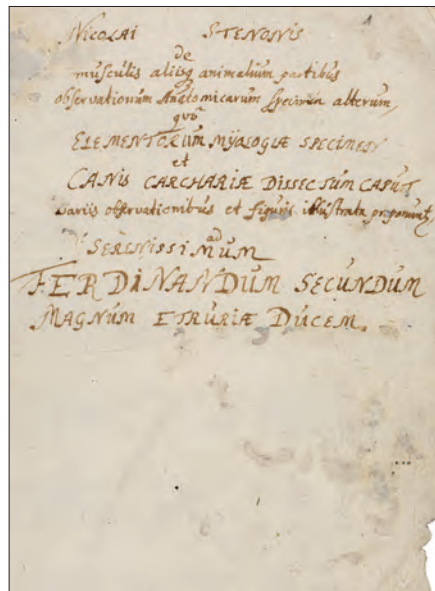 1
NICOLAI STENONIS
de
musculis aliisq animalium partibus
observationum Anatomicarum specimen alterum,
quo
ELEMENTORUM MYOLOGIÆ SPECIMEN
et
CANIS CARCHARIÆ DISSECTUM CAPUT
variis observationibus et figuris illustrata proponunt,
ad
SERENISSIMUM
FERDINANDUM SECUNDUM
MAGNUM ETRURIÆ DUCEM.